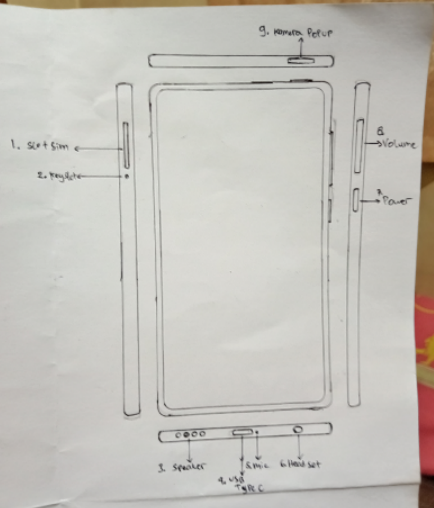 9. Kamera PoPuP
1. Slot Sim
2. Keyhole
8.
Volume
7.
Power
3. Speaker
4. USB
TyPe C
5. mic
6. Headset